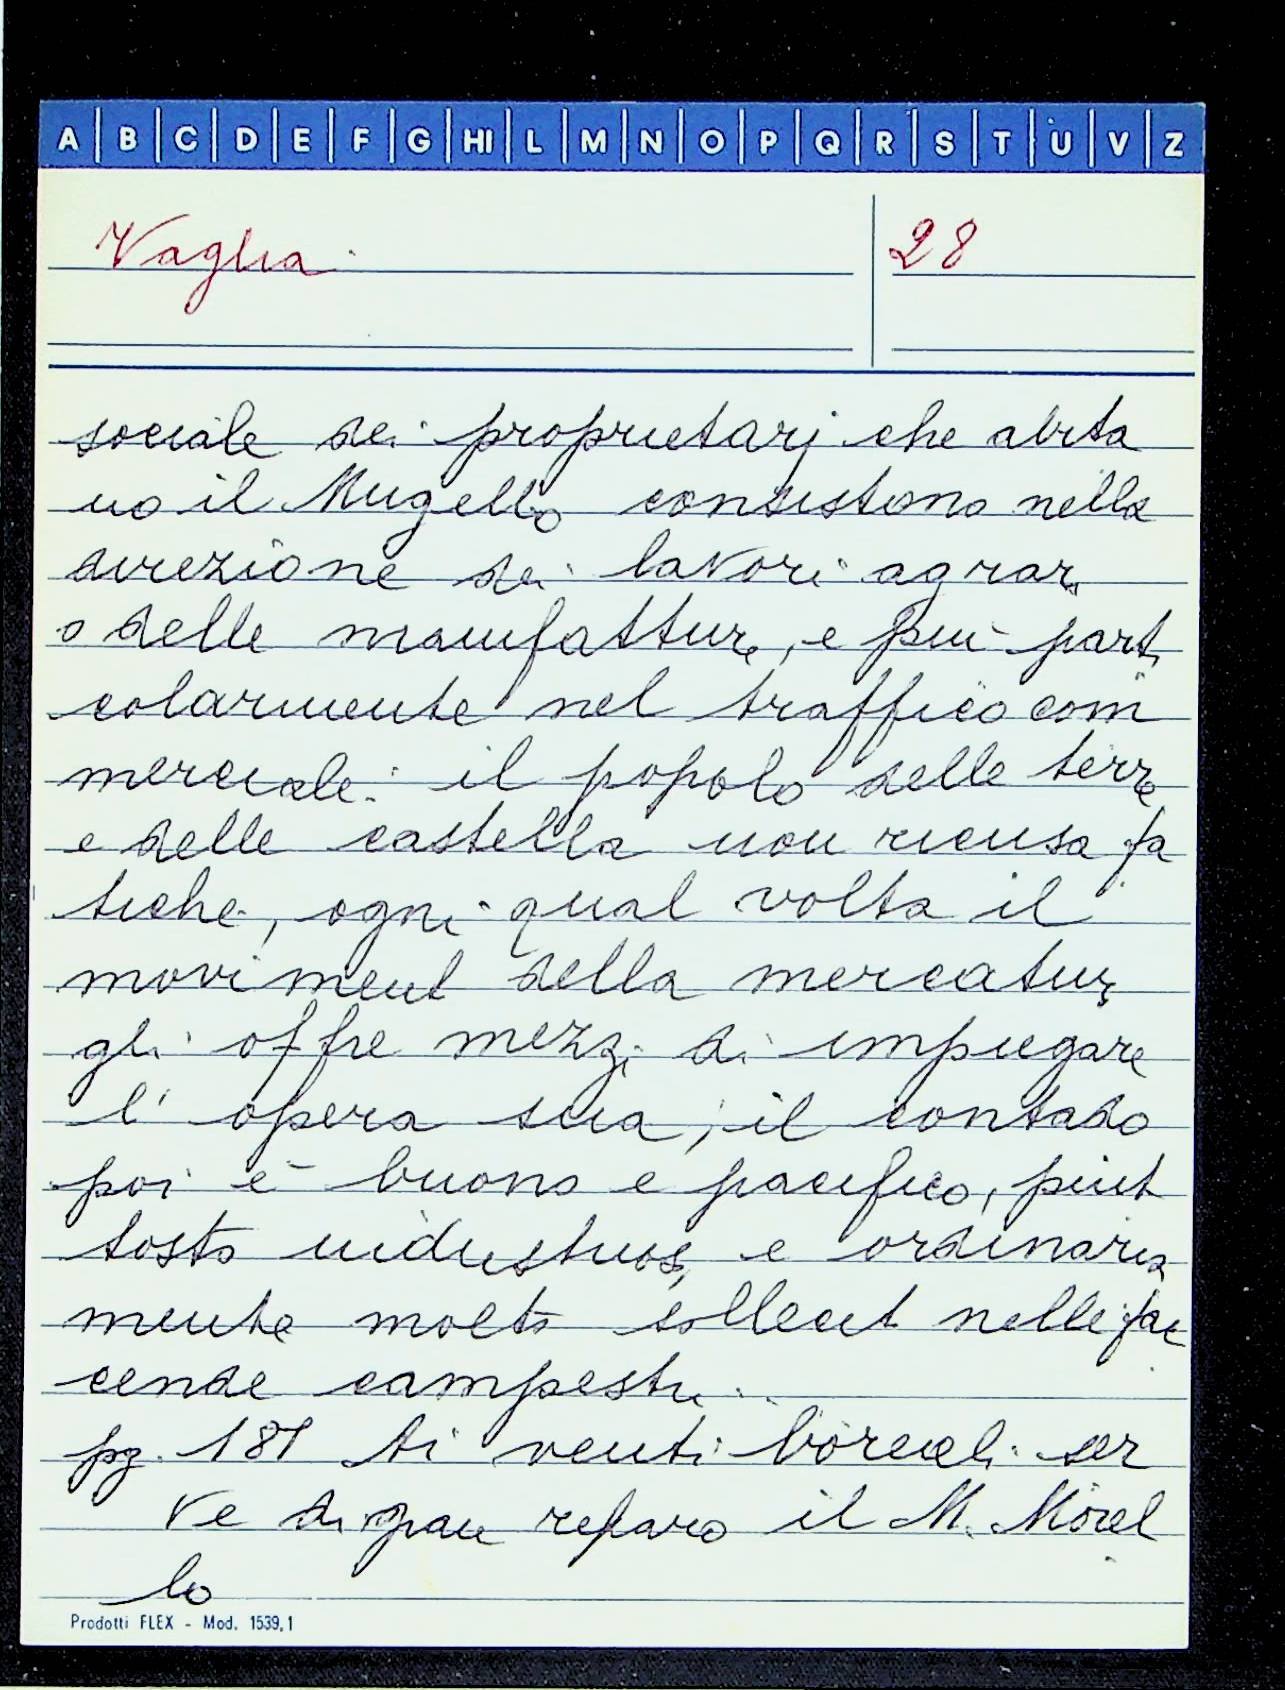 A B C D E F G HI L M N O P Q R S T U V Z
Vaglia 28
sociale dei proprietarj che abita
no il Mugello consistono nella
direzione dei lavori agrari
o delle manifatture, e più parti
colarmente nel traffico com
merciale: il popolo delle terre
e delle castella non ricusa fa
tiche, ogni qual volta il
moviment della mercatura
gli offre mezzi di impiegare
l' opera sua; il contado
poi è buono e pacifico, piut
tosto industrioso, e ordinaria
mente molto sollecit nelle fac
cende campestri.
pg. 181 Ai venti boreali ser
ve di gran reparo il M. Morel
lo
Prodotti FLEX - Mod. 1539,1